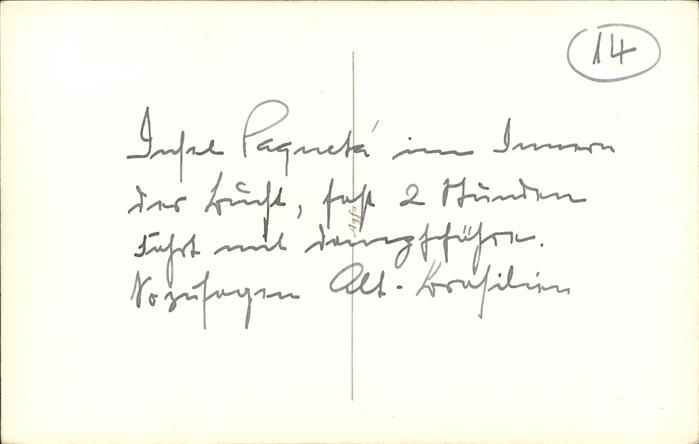 14
Insel Paquetá im Innern
der Bucht, fast 2 Stunden
Fahrt mit Dampffähre.
Sozusagen Alt-Brasilien
Agfa